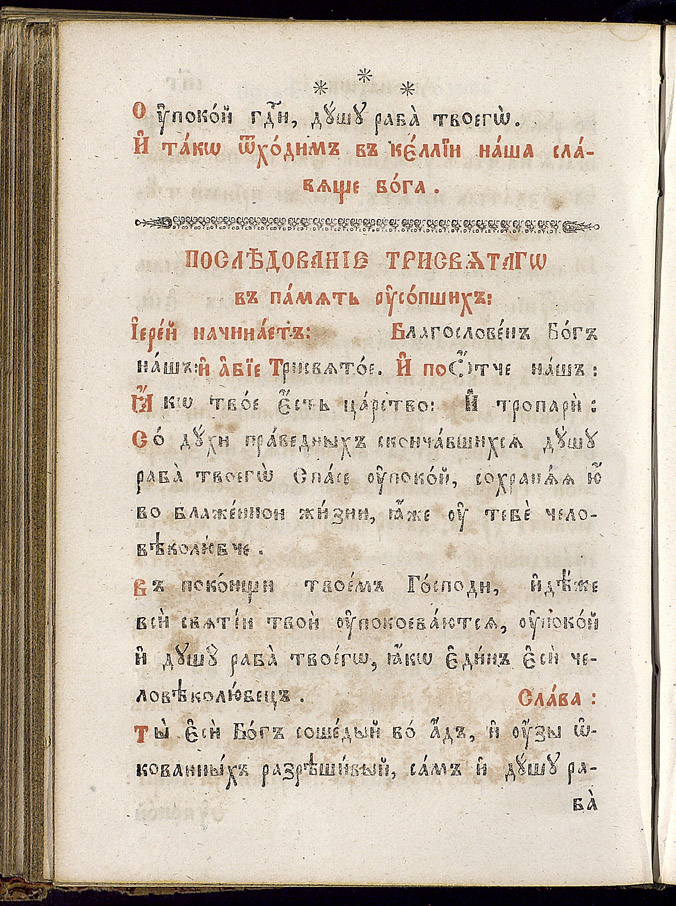 * * *
Оу҆поко́й гдⷭ҇и, дꙋ́шꙋ раба̀ твоегѡ̀.
И҆ та́кѡ ѿхо́димъ въ ке́ллїи на́ша сла́-
вѧще бо́га.
ПОСЛѢДОВАНІЕ ТРИСВѦТАГѠ
въ па́мѧть оу҆со́пшихъ:
І҆ере́й начина́етъ: Благослове́нъ Бо́гъ
на́шъ: и҆ а҆́бїе Трисвѧто́е. И҆ по Ѻ҆́тче на́шъ:
Ꙗ҆́кѡ твоѐ є҆́сть ца́рство: И҆ тропарѝ:
Со́ дꙋ́хи пра́ведныхъ сконча́вшихсѧ дꙋ́шꙋ
раба̀ твоегѡ̀ Спа́се оу҆поко́й, сохранѧ́ѧ ю҆̀
во блаже́ннои жи́зни, ꙗ҆́же оу҆ тебѐ чело-
вѣколю́бче.
Въ поко́ищи твое́мъ Го́споди, и҆дѣ́же
всѝ свѧті́и твоѝ оу҆покоева́ютсѧ, оу҆поко́й
и҆ дꙋ́шꙋ раба̀ твоегѡ̀, ꙗ҆́кѡ є҆ди́нъ є҆сѝ че-
ловѣколю́бецъ. Сла́ва:
Ты̀ є҆сѝ Бо́гъ соше́дый во́ а҆́дъ, и҆ оу҆́зы ѡ҆-
кова́нныхъ разрѣши́вый, са́мъ и҆ дꙋ́шꙋ ра-
ба̀